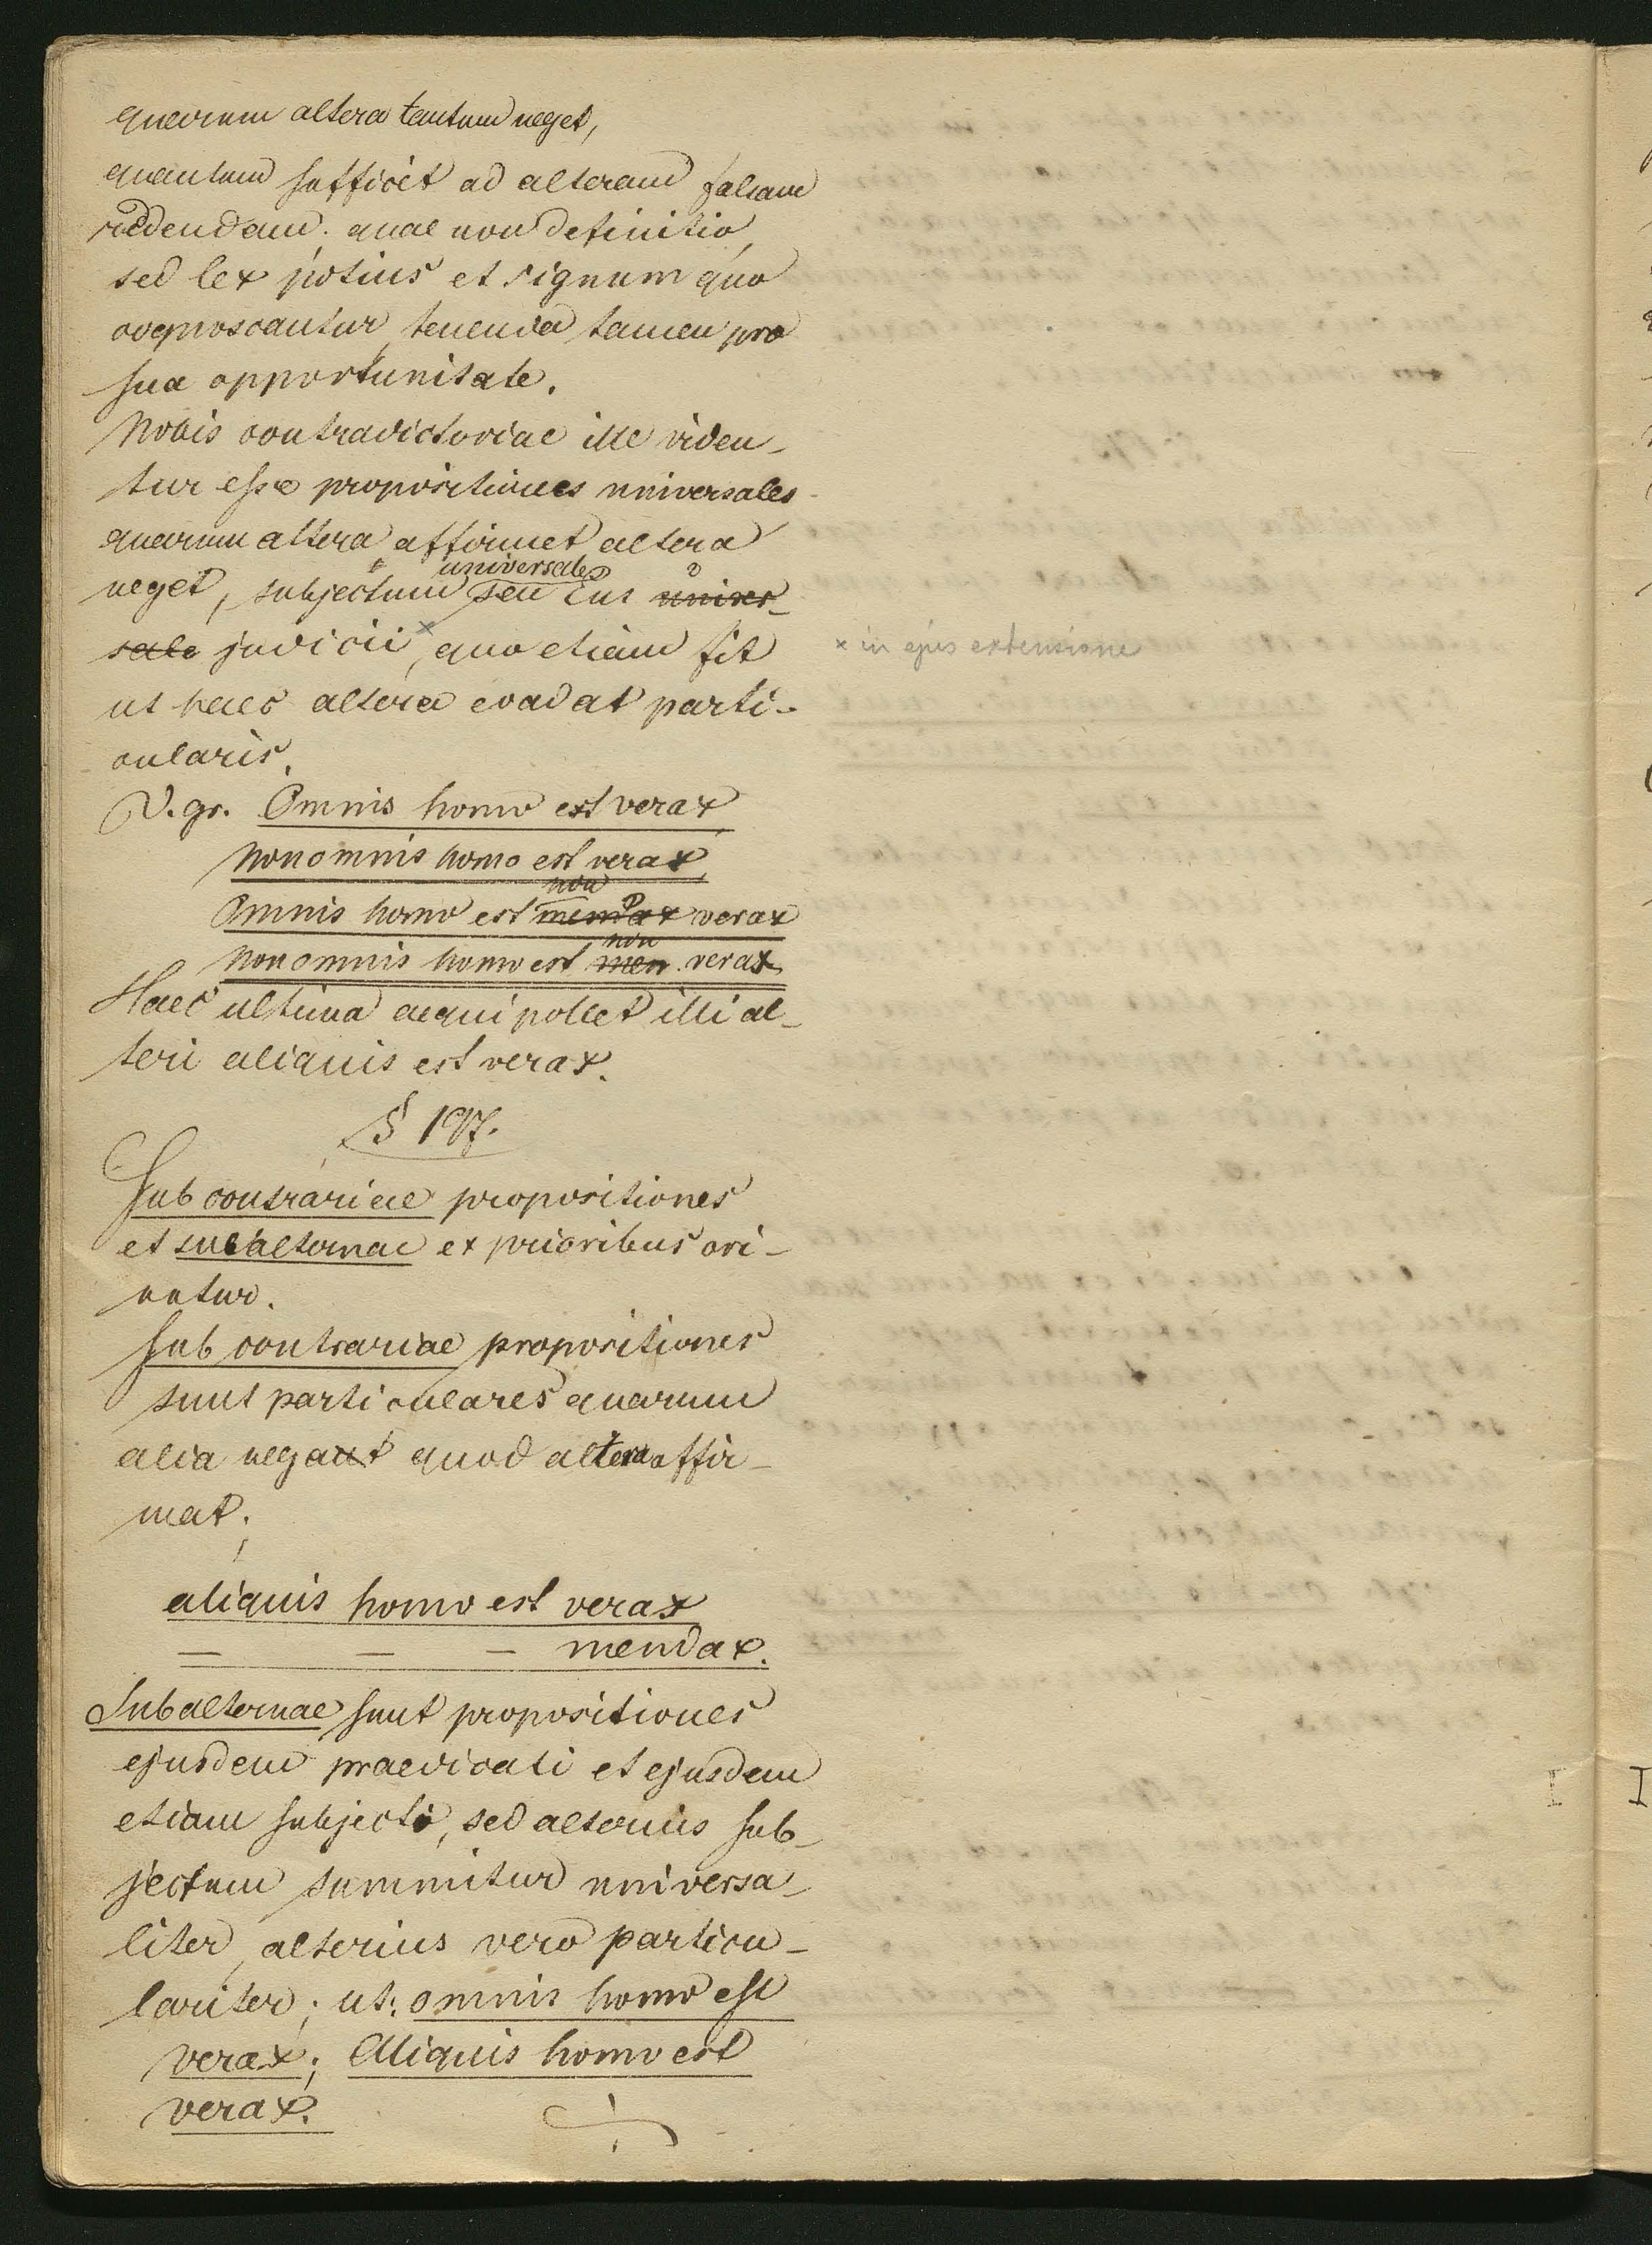 quarum altera tantum neget,
quantum sufficit ad alteram falsam
reddendam; quae non definitio,
sed lex potius et signum quo
cognoscantur, tenenda tamen pro
sua opportunitate.
Nobis contradictoriae ille viden-
tur esse propositiones universales
quarum altera affirmet altera
universale
neget, subjectum seu ens univer-
sale judicii x, quo etiam fit
x in ejus extensione
ut haec altera evadat parti-
cularis.
V. gr. Omnis homo est verax,
Non omnis homo est verax,
non
Omnis homo est mendax verax
non
Non omnis homo est men verax
Haec ultima aequipollet illi al-
teri aliquis est verax.
§ 197.
Subcontrariae propositiones
et subalternae ex prioribus ori-
untur.
Subcontrariae propositiones
sunt particulares quarum
alia negat quod altera affir-
mat;
aliquis homo est verax
— — — mendax.
Subalternae sunt propositiones
ejusdem praedicati et ejusdem
etiam subjecti, sed alterius sub-
jectum summitur universa-
liter, alterius vero particu-
lariter; ut: omnis homo est
verax; Aliquis homo est
verax.